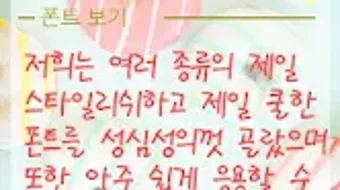 폰트 보기
저희는 여러 종류의 제일
스타일리쉬하고 제일 쿨한
폰트를 성심성의껏 골랐으며,
또한 아주 쉽게 응용할 수